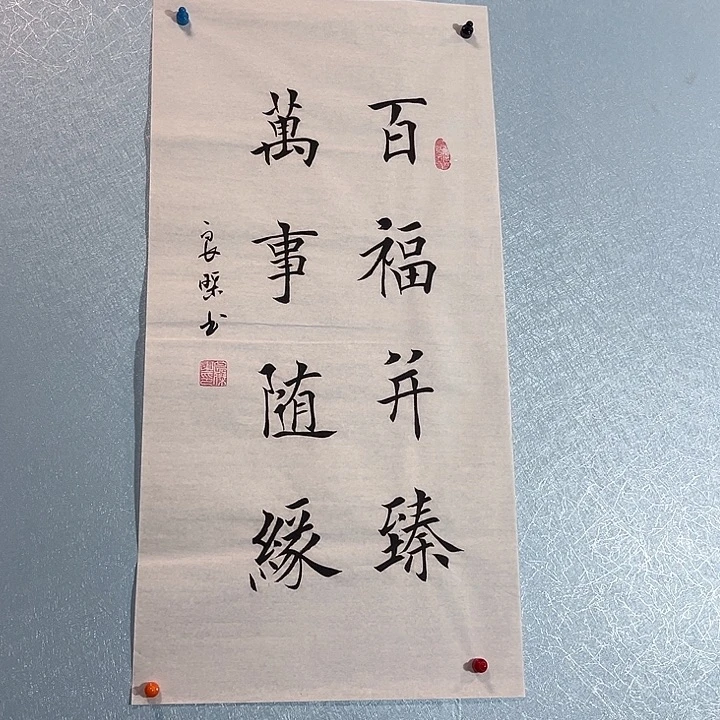 百福并臻
萬事随緣
良琹书